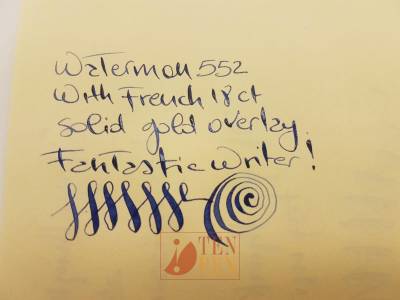 Waterman 552
With French 18 ct
solid gold overlay.
Fantastic writer!
TEN
PEN